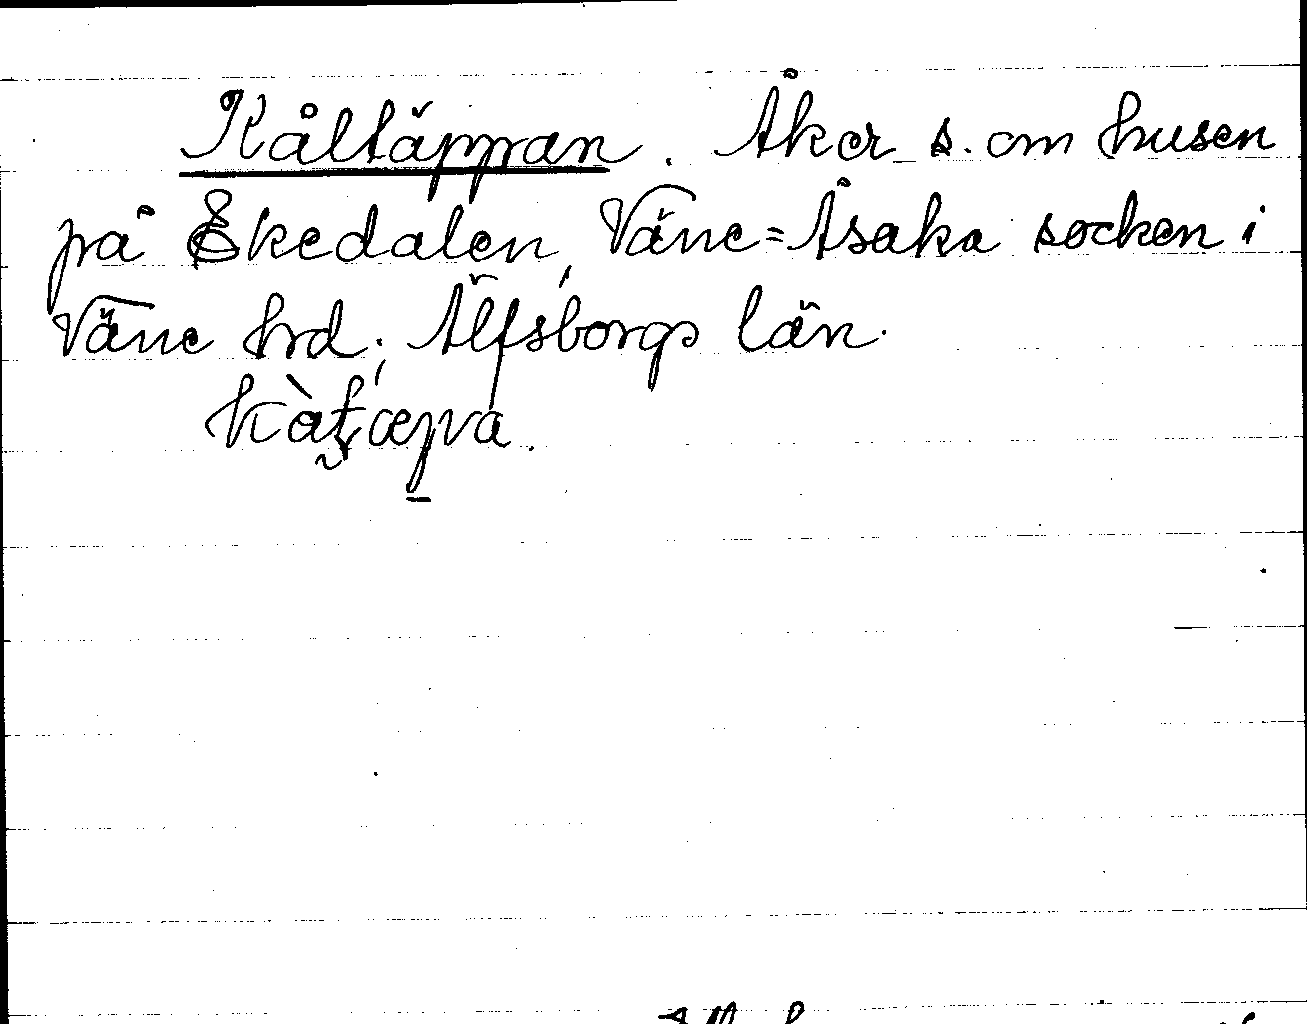 Kåltäppan. Åker s. om husen
på Ekedalen, Väne=Åsaka socken i
Väne hrd, Älfsborgs län.